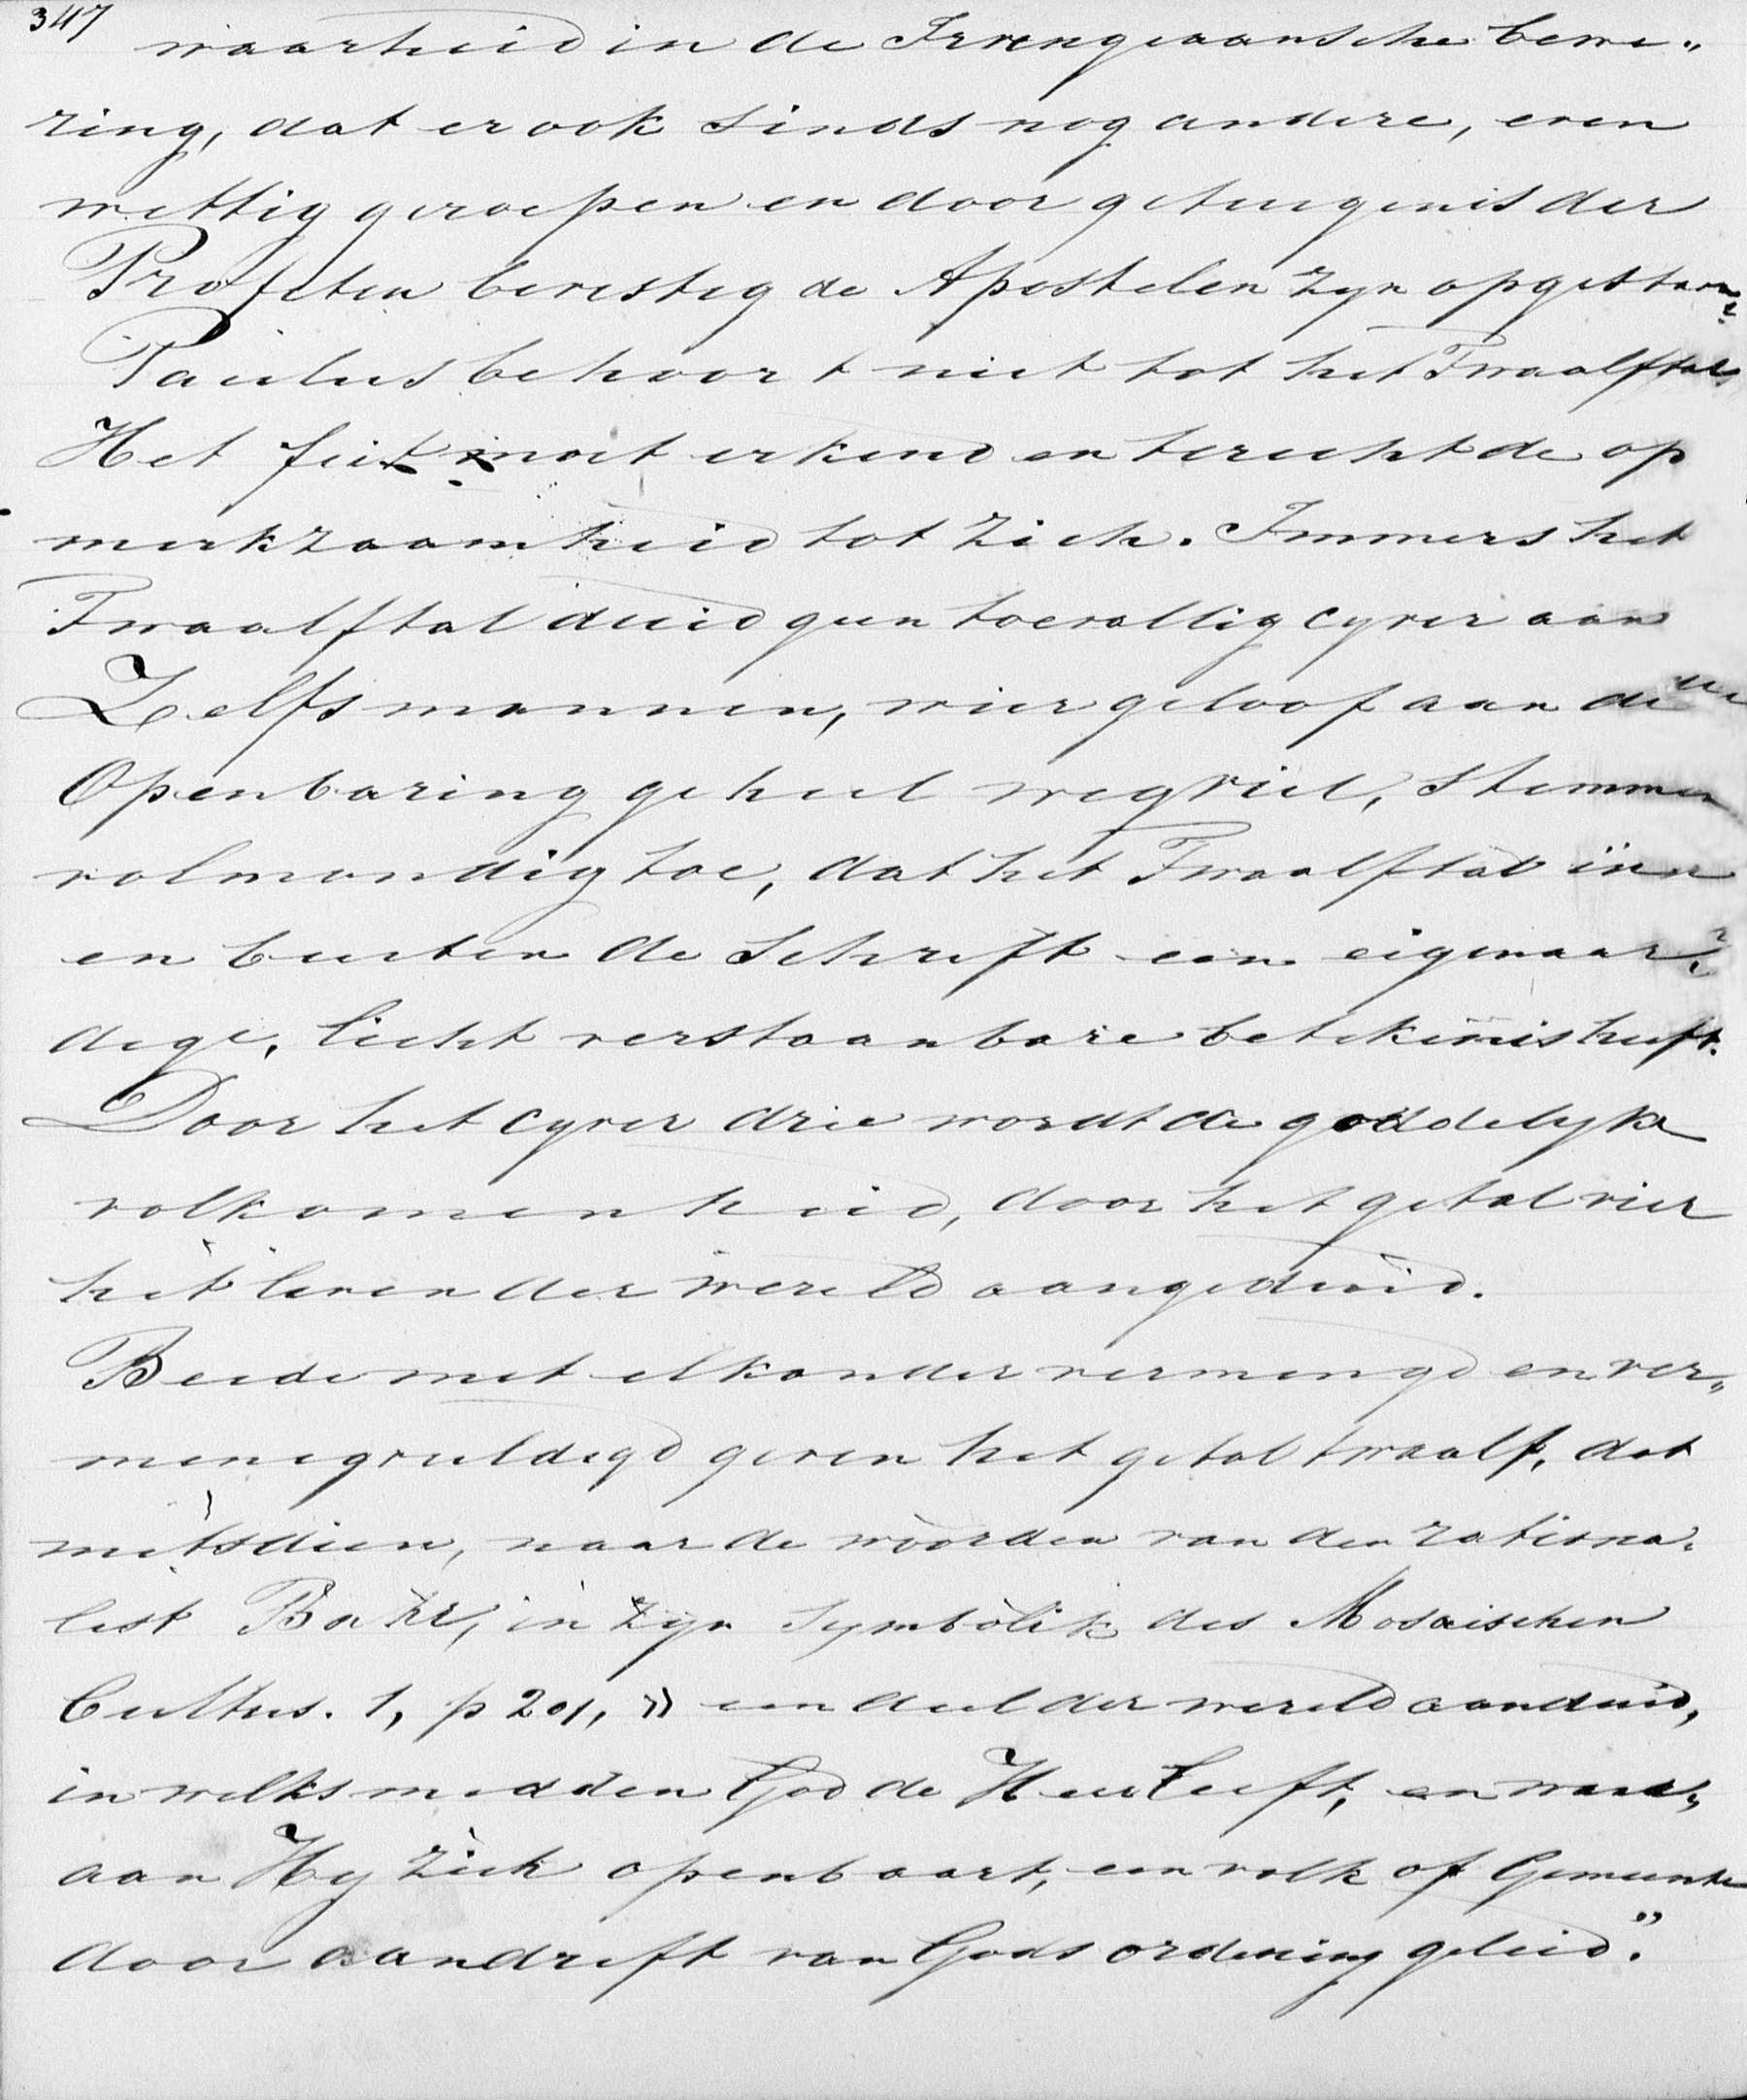 347
waarheid in de Irvengeaansche bewe„
ring, dat er ook sinds nog andere, even
wettig geroepen en door getuigenis der
Profeten bevestig de Apostelen zyn opgestaan
Paulus behoort niet tot het Twaalftal
Het feit moet erkend en terecht de op
merkzaamheid tot zich. Immers het
Twaalftal duid geen toevallig cyver aan
Zelfs mannen, wier geloof aan de
Openbaring geheel wegviel, stemmen
volmondig toe, dat het Twaalftal in
en buiten de Schrift een eigenaar
dige, licht verstaanbare betekenis heeft.
Door het cyver drie wordt de goddelyke
volkomenheid, door het getal vier
het leven der wereld aangeduid.
Beide met elkander vermengd en ver„
menigvuldigd geven het getal twaalf, dat
mitsdien, naar de woorden van den rationa„
list Bahr, in zyn Symbolik des Mosaischen
Cultus. 1, p 201, » een deel der wereld aanduid,
in welks midden God de Heer leeft, en waar„
aan Hy zich openbaart, een volk of Gemeente
door aandrift van Gods ordening geleid."